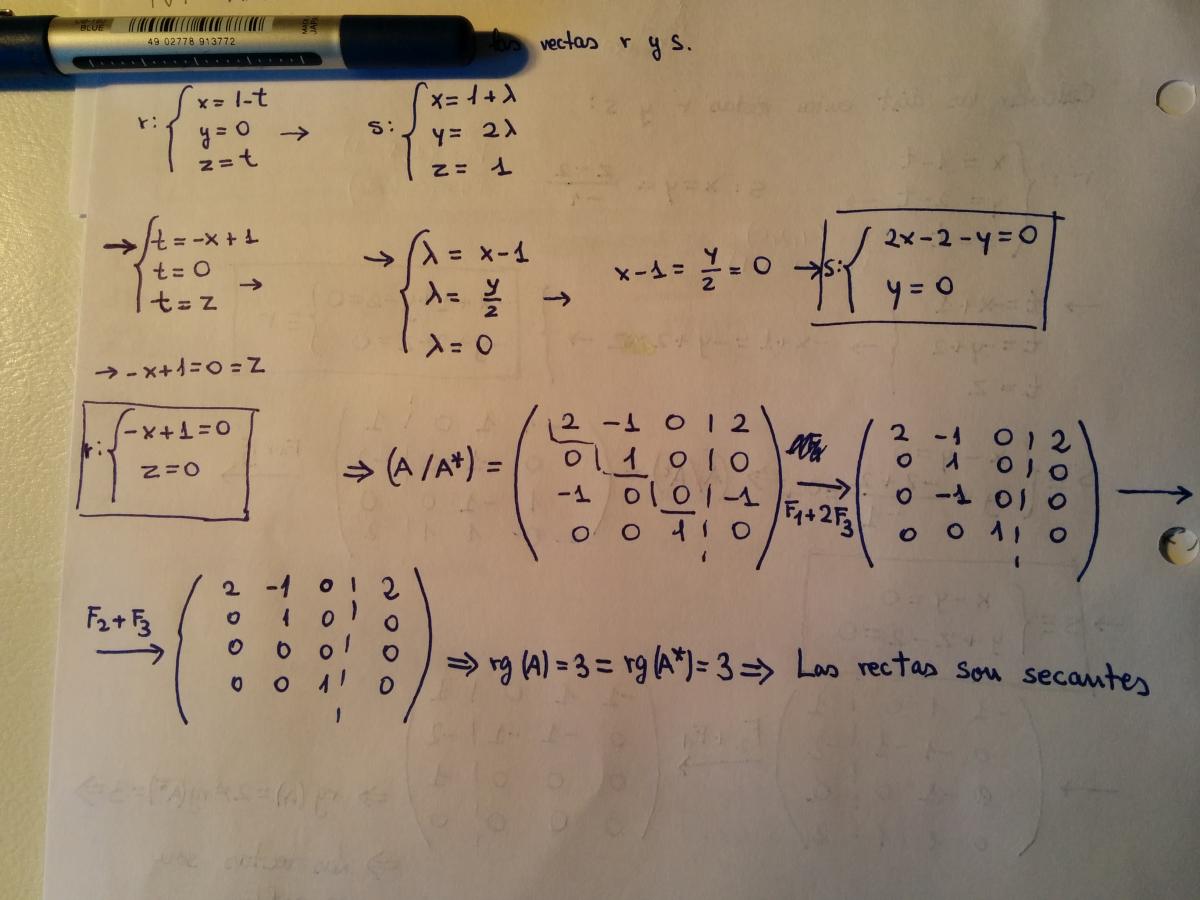 BLUE
49 02778 913772
las rectas r y s.
r: { x = 1-t
y = 0 →
z = t
s: { x = 1+λ
y = 2λ
z = 1
→ { t = -x+1
t = 0 →
t = z
→ { λ = x-1
λ = y/2 →
λ = 0
x-1 = y/2 = 0 → s: { 2x-2-y=0
y = 0
→ -x+1=0=z
r: { -x+1=0
z=0
⇒ (A/A*) = ( 2 -1 0 | 2
0 1 0 | 0
-1 0 0 | -1
0 0 1 | 0 )
→ F₁+2F₃
( 2 -1 0 | 2
0 1 0 | 0
0 -1 0 | 0
0 0 1 | 0 ) →
F₂+F₃ →
( 2 -1 0 | 2
0 1 0 | 0
0 0 0 | 0
0 0 1 | 0 )
⇒ rg(A)=3=rg(A*)=3 ⇒ Las rectas son secantes